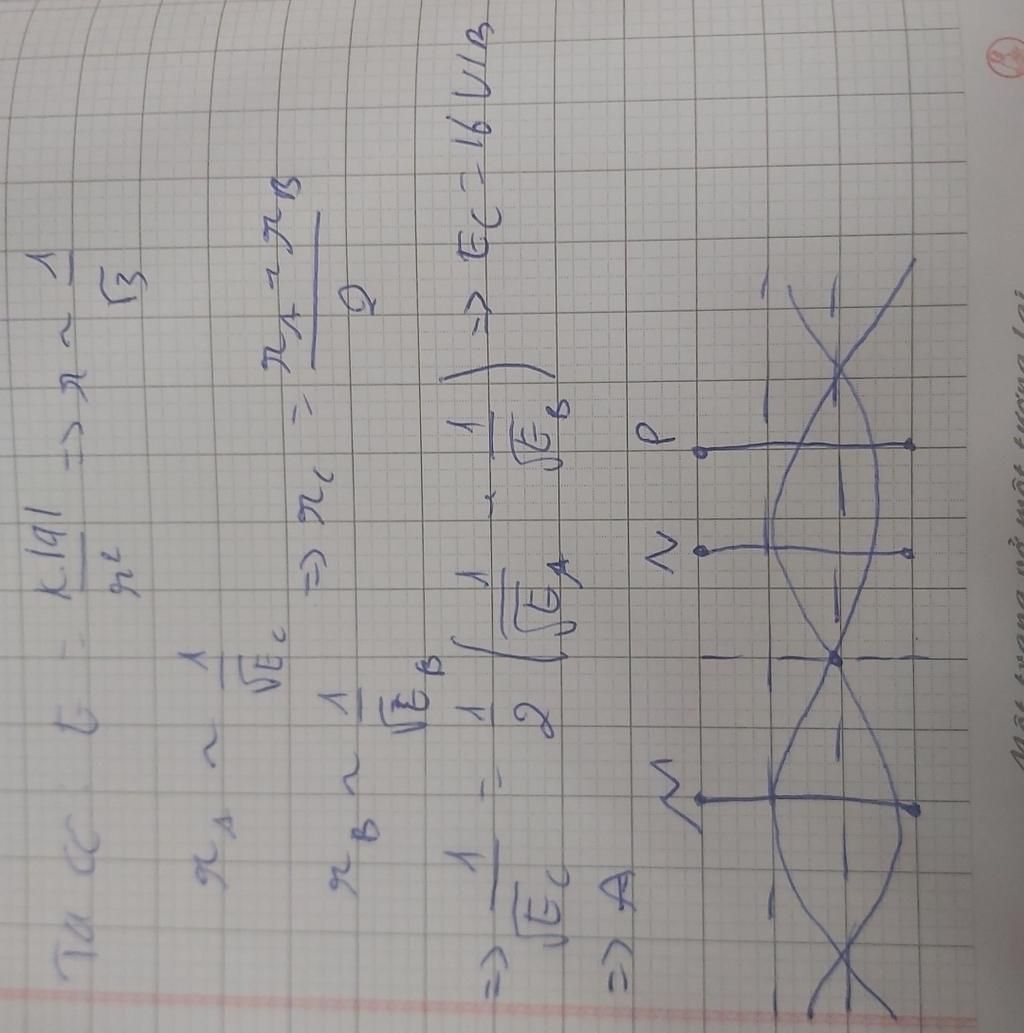 Ta có E = k.|q| / r² => r ~ 1/√3
r_A ~ 1/√E_C
r_B ~ 1/√E_B => r_C = (r_A ~ r_B) / 2
=> 1/√E_C = 1/2 (1/√E_A ~ 1/√E_B) => E_C = 16 V/B
=> A
M N P